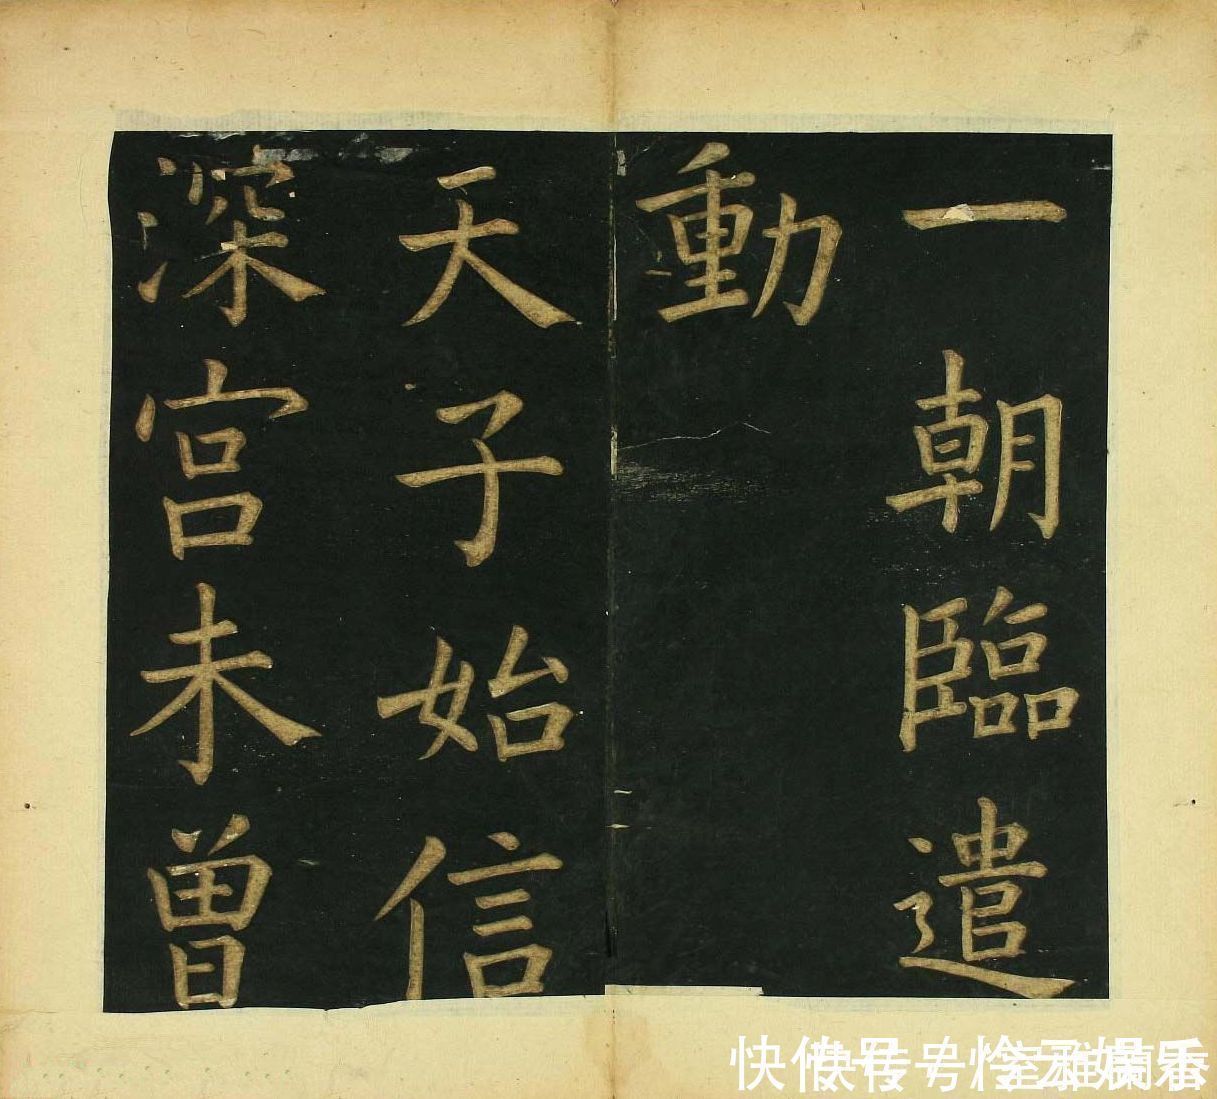 一朝臨遣
動
天子始信
深宫未曾
快传号